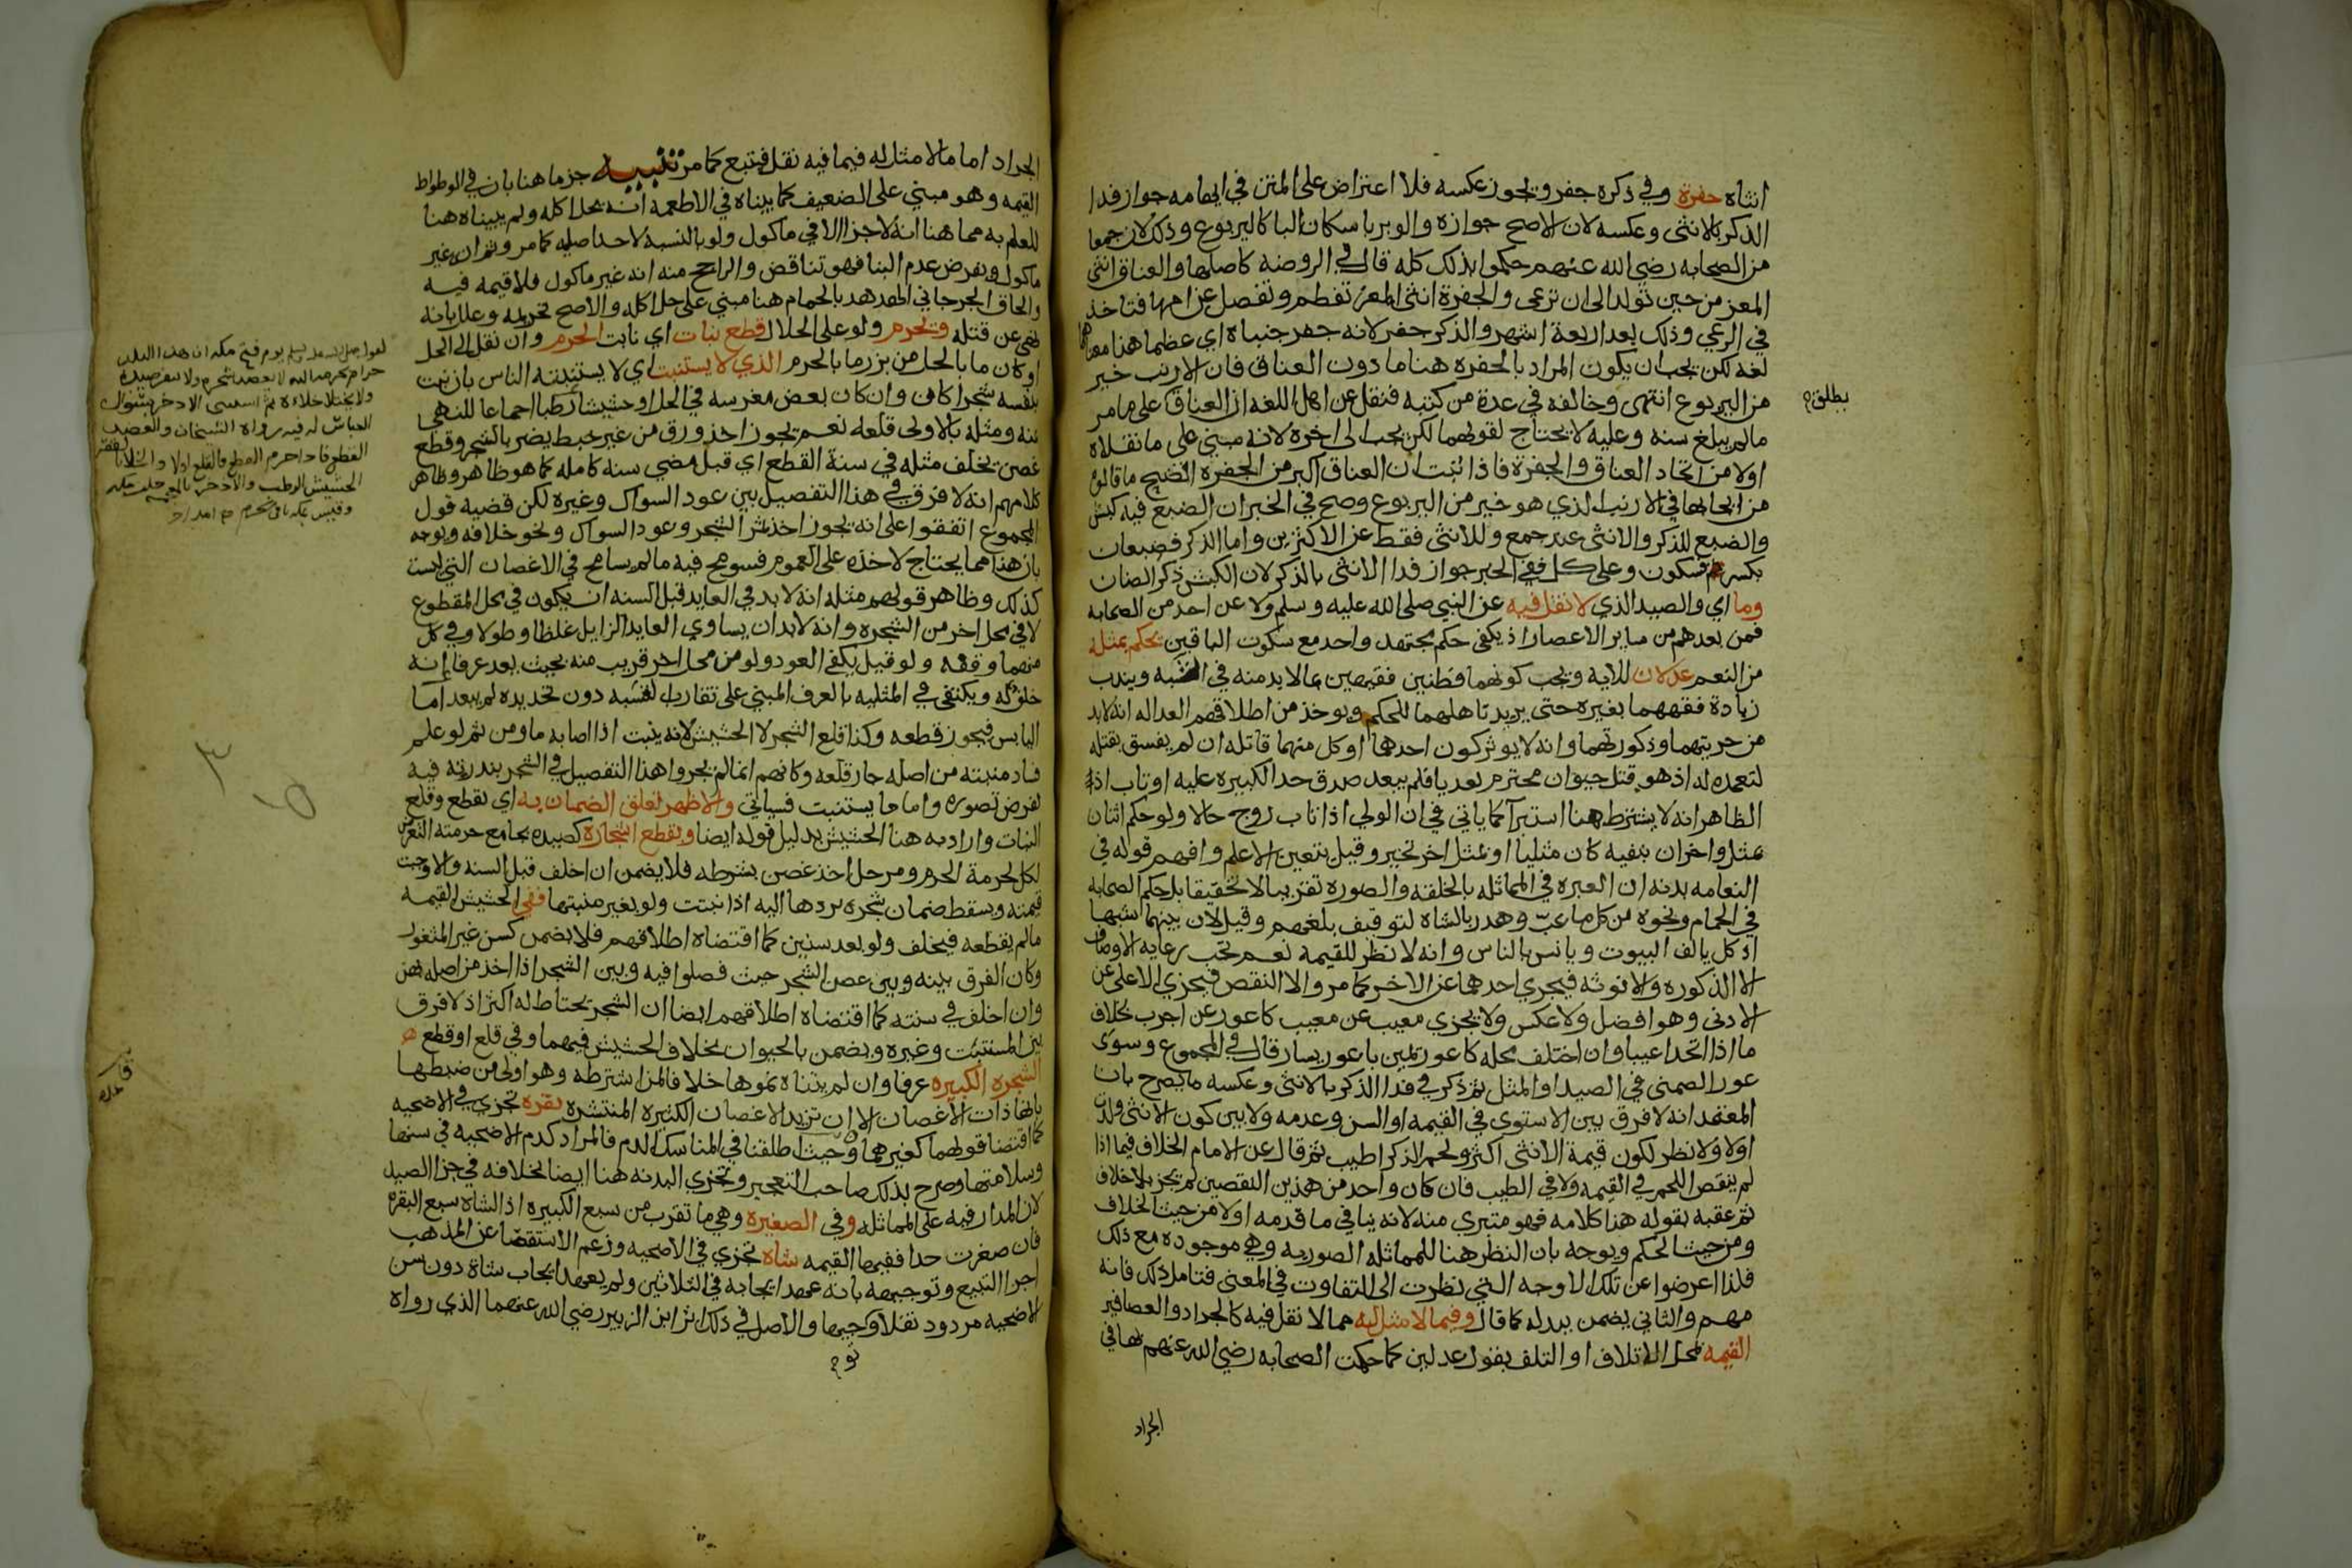 انثاه حفرة وفي ذكره جفر ويجوز عكسه فلا اعتراض على المتن في ايهامه جواز فدا
الذكر بالانثى وعكسه لان الاصح جوازه والوبر باسكان البا كاليربوع وذلك لان جمعا
من الصحابه رضي الله عنهم حكموا بذلك كله قال في الروضه كاصلها والعناق انثى
المعز من حين تولد الى ان ترعى والجفرة انثى المعز تفطم وتفصل عن امها فتاخذ
في الرعي وذلك بعد اربعة اشهر والذكر جفر لانه جفر جنباه اي عظما هنا معناهما
لغه لكن يجب ان يكون المراد بالجفره هنا ما دون العناق فان الارنب خير
من اليربوع انتهى وخالفه في عدة من كتبه فنقل عن اهل اللغه ان العناق على ما مر
يطلق
مالم يبلغ سنه وعليه لا يحتاج لقولهما لكن يجب الى اخره لانه مبني على ما نقلاه
اولا من اتحاد العناق والجفرة فاذا ثبت ان العناق اكبر من الجفره اتضح ما قالوه
من ايجابها في الارنب الذي هو خير من اليربوع وصح في الخبر ان الضبع فيه كبش
والضبع للذكر والانثى عند جمع وللانثى فقط عن الاكثرين واما الذكر فضبعان
بكسر فسكون وعلى كل ففي الخبر جواز فدا الانثى بالذكر لان الكبش ذكر الضان
وما اي والصيد الذي لا نقل فيه عن النبي صلى الله عليه وسلم ولا عن احد من الصحابه
فمن بعدهم من ساير الاعصار اذ يكفى حكم مجتهد واحد مع سكوت الباقين يحكم بمثله
من النعم عدلان للايه ويجب كونهما فطنين فقيهين بمالا بد منه في الشبه ويندب
زيادة فقههما بغيره حتى يزيد تاهلهما للحكم ويوخذ من اطلاقهم العداله انه لابد
من حريتهما وذكورتهما وانه لا يوثر كون احدهما او كل منهما قاتله ان لم يفسق بقتله
لتعمده له اذ هو قتل حيوان محترم تعديا فلم يبعد صدق حد الكبيره عليه او تاب اذ
الظاهر انه لا يشترط هنا استبرآ كما ياتي في ان الولي اذا تاب زوج حالا ولو حكم اثنان
بمثل واخران بنفيه كان مثليا او بمثل اخر تخير وقيل يتعين الاعلم وافهم قوله في
النعامه بدنه ان العبره في المماثله بالخلقه والصوره تقريبا لا تحقيقا بل حكم الصحابه
في الحمام ونحوه من كل ما عبّ وهدر بالشاه لتوقيف بلغهم وقيل لان بينهما شبها
اذ كل يالف البيوت ويانس بالناس وانه لا نظر للقيمه نعم تجب رعاية الاوصاف
الا الذكوره والانوثه فيجزي احدهما عن الاخر كما مر والا النقص فيجزي الاعلى عن
الادنى وهو افضل ولا عكس ولا يجزي معيب عن معيب كاعور عن اجرب بخلاف
ما اذا اتحدا عيبا وان اختلف محله كاعور يمين باعور يسار قال في المجموع وسوى
عور اليمنى في الصيد او المثل ثم ذكر في فدا الذكر بالانثى وعكسه ما يصرح بان
المعتمد انه لا فرق بين الاستوى في القيمه او السن وعدمه ولا بين كون الانثى ولدت
اولا ولا نظر لكون قيمة الانثى اكثر ولحم الذكر اطيب ثم قال عن الامام الخلاف فيما اذا
لم ينقص اللحم في القيمه ولا في الطيب فان كان واحد من هذين النقصين لم يجز بلا خلاف
ثم عقبه بقوله هذا كلامه فهو متبري منه لانه ينافي ما قدمه اولا من حيث الخلاف
ومن حيث الحكم ويوجه بان النظر هنا للمماثله الصوريه وهي موجوده مع ذلك
فلذا اعرضوا عن تلك الاوجه التي نظرت الى التفاوت في المعنى فتامل ذلك فانه
مهم والثاني يضمن ببدله كما قال وفيما لا مثل له مما لا نقل فيه كالجراد والعصافير
القيمه بمحل الاتلاف او التلف بقول عدلين كما حكمت الصحابه رضي الله عنهم بها في
الجراد
الجراد اما مالا مثل له فيما فيه نقل فيتبع كما مر تنبيه جزما هنا بان في الوطواط
القيمه وهو مبني على الضعيف كما بيناه في الاطعمه انه يحل اكله ولم يبيناه هنا
للعلم به مما هنا انه لا جزا الا في ماكول ولو بالنسبه لاحد اصليه كما مر وثم ان غير
ماكول وبفرض عدم البنا فهو تناقض والراجح منه انه غير ماكول فلا قيمه فيه
والحاق الجرجاني الهدهد بالحمام هنا مبني على حل اكله والاصح تحريمه وعلل بانه
نهى عن قتله ويحرم ولو على الحلال قطع نبات اي نابت الحرم وان نقل الى الحل
او كان ما بالحل من بزر ما بالحرم الذي لا يستنبت اي لا يستنبته الناس بان نبت
بنفسه شجرا كان وان كان بعض مغرسه في الحل او حشيشا رطبا اجماعا للنهي
عنه ومثله بالاولى قلعه نعم يجوز اخذ ورق من غير خبط يضر بالشجر وقطع
غصن يخلف مثله في سنة القطع اي قبل مضي سنه كامله كما هو ظاهر وظاهر
كلامهم انه لا فرق في هذا التفصيل بين عود السواك وغيره لكن قضيه قول
المجموع اتفقوا على انه يجوز اخذ ثمر الشجر وعود السواك ونحو خلافه ويوجه
بان هذا مما يحتاج لاخذه على العموم فسومح فيه ما لم يسامح في الاغصان التي ليست
كذلك وظاهر قولهم مثله انه لا بد في العايد قبل السنه ان يكون في محل المقطوع
لا في محل اخر من الشجره وانه لابد ان يساوي العايد الزايل غلظا وطولا وفي كل
منهما وقفه ولو قيل يكفي العود ولو من محل اخر قريب منه بحيث يعد عرفا انه
خلف له ويكتفى في المثليه بالعرف المبني على تقارب الشبه دون تحديده لم يبعد اما
اليابس فيجوز قطعه وكذا قلع الشجر لا الحشيش لانه ينبت اذا اصابه ما ومن ثم لو علم
فساد منبته من اصله جاز قلعه وكانهم انما لم يجروا هذا التفصيل في الشجر لندرته فيه
بفرض تصوره واما ما يستنبت فسياتي والاظهر تعلق الضمان به اي بقطع وقلع
النبات واراد به هنا الحشيش بدليل قوله ايضا وبقطع اشجاره كصيده بجامع حرمته التعرض
لكل لحرمة الحرم ومر حل اخذ غصن بشرطه فلا يضمن ان اخلف قبل السنه والا وجبت
قيمته ويسقط ضمان شجره بردها اليه اذا نبتت ولو بغير منبتها ففي الحشيش القيمه
مالم يقطعه فيخلف ولو بعد سنين كما اقتضاه اطلاقهم فلا يضمن كسن غير المثغور
وكان الفرق بينه وبين غصن الشجر حيث فصلوا فيه وبين الشجر اذا اخذ من اصله يضمن
وان اخلف في سنته كما اقتضاه اطلاقهم ايضا ان الشجر يحتاط له اكثر اذ لا فرق
بين المستنبت وغيره ويضمن بالحيوان بخلاف الحشيش فيهما وفي قلع او قطع
الشجره الكبيره عرفا وان لم يتناه نموها خلافا لمن اشترطه وهو اولى من ضبطها
بانها ذات الاغصان الا ان تريد الاغصان الكثيره المنتشره بقره تجزي في الاضحيه
كما اقتضا قولهما كغيرهما وحيث اطلقنا في المناسك الدم فالمراد كدم الاضحيه في سنها
وسلامتها وصرح بذلك صاحب التعجيز وتجزي البدنه هنا ايضا بخلافه في جزا الصيد
لان المدار فيه على المماثله وفي الصغيره وهي ما تقرب من سبع الكبيره اذ الشاه سبع البقره
فان صغرت جدا ففيها القيمه شاه تجزي في الاضحيه وزعم الاستقصا عن المذهب
اجزا التبيع وتوجيهه بانه عهد ايجابه في الثلاثين ولم يعهد ايجاب شاة دون سن
الاضحيه مردود نقلا وتوجيها والاصل في ذلك اثر ابن الزبير رضي الله عنهما الذي رواه
لقوله صلى الله عليه وسلم يوم فتح مكه ان هذا البلد
حرام بحرمة الله لا يعضد شجره ولا ينفر صيده
ولا يختلا خلاه ثم استثنى الاذخر بسوال
العباس له فيه رواه الشيخان والعضد
القطع فاذا حرم القطع فالقلع اولى والخلا بالقصر
الحشيش الرطب والاذخر بالمعجمه حلف مكه
وقيس بمكه باقي الحرم
قاعده